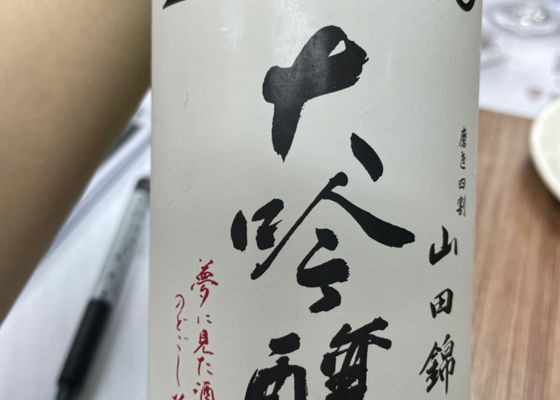 磨き四割
山田錦
大吟醸
夢に見た酒
のどごし